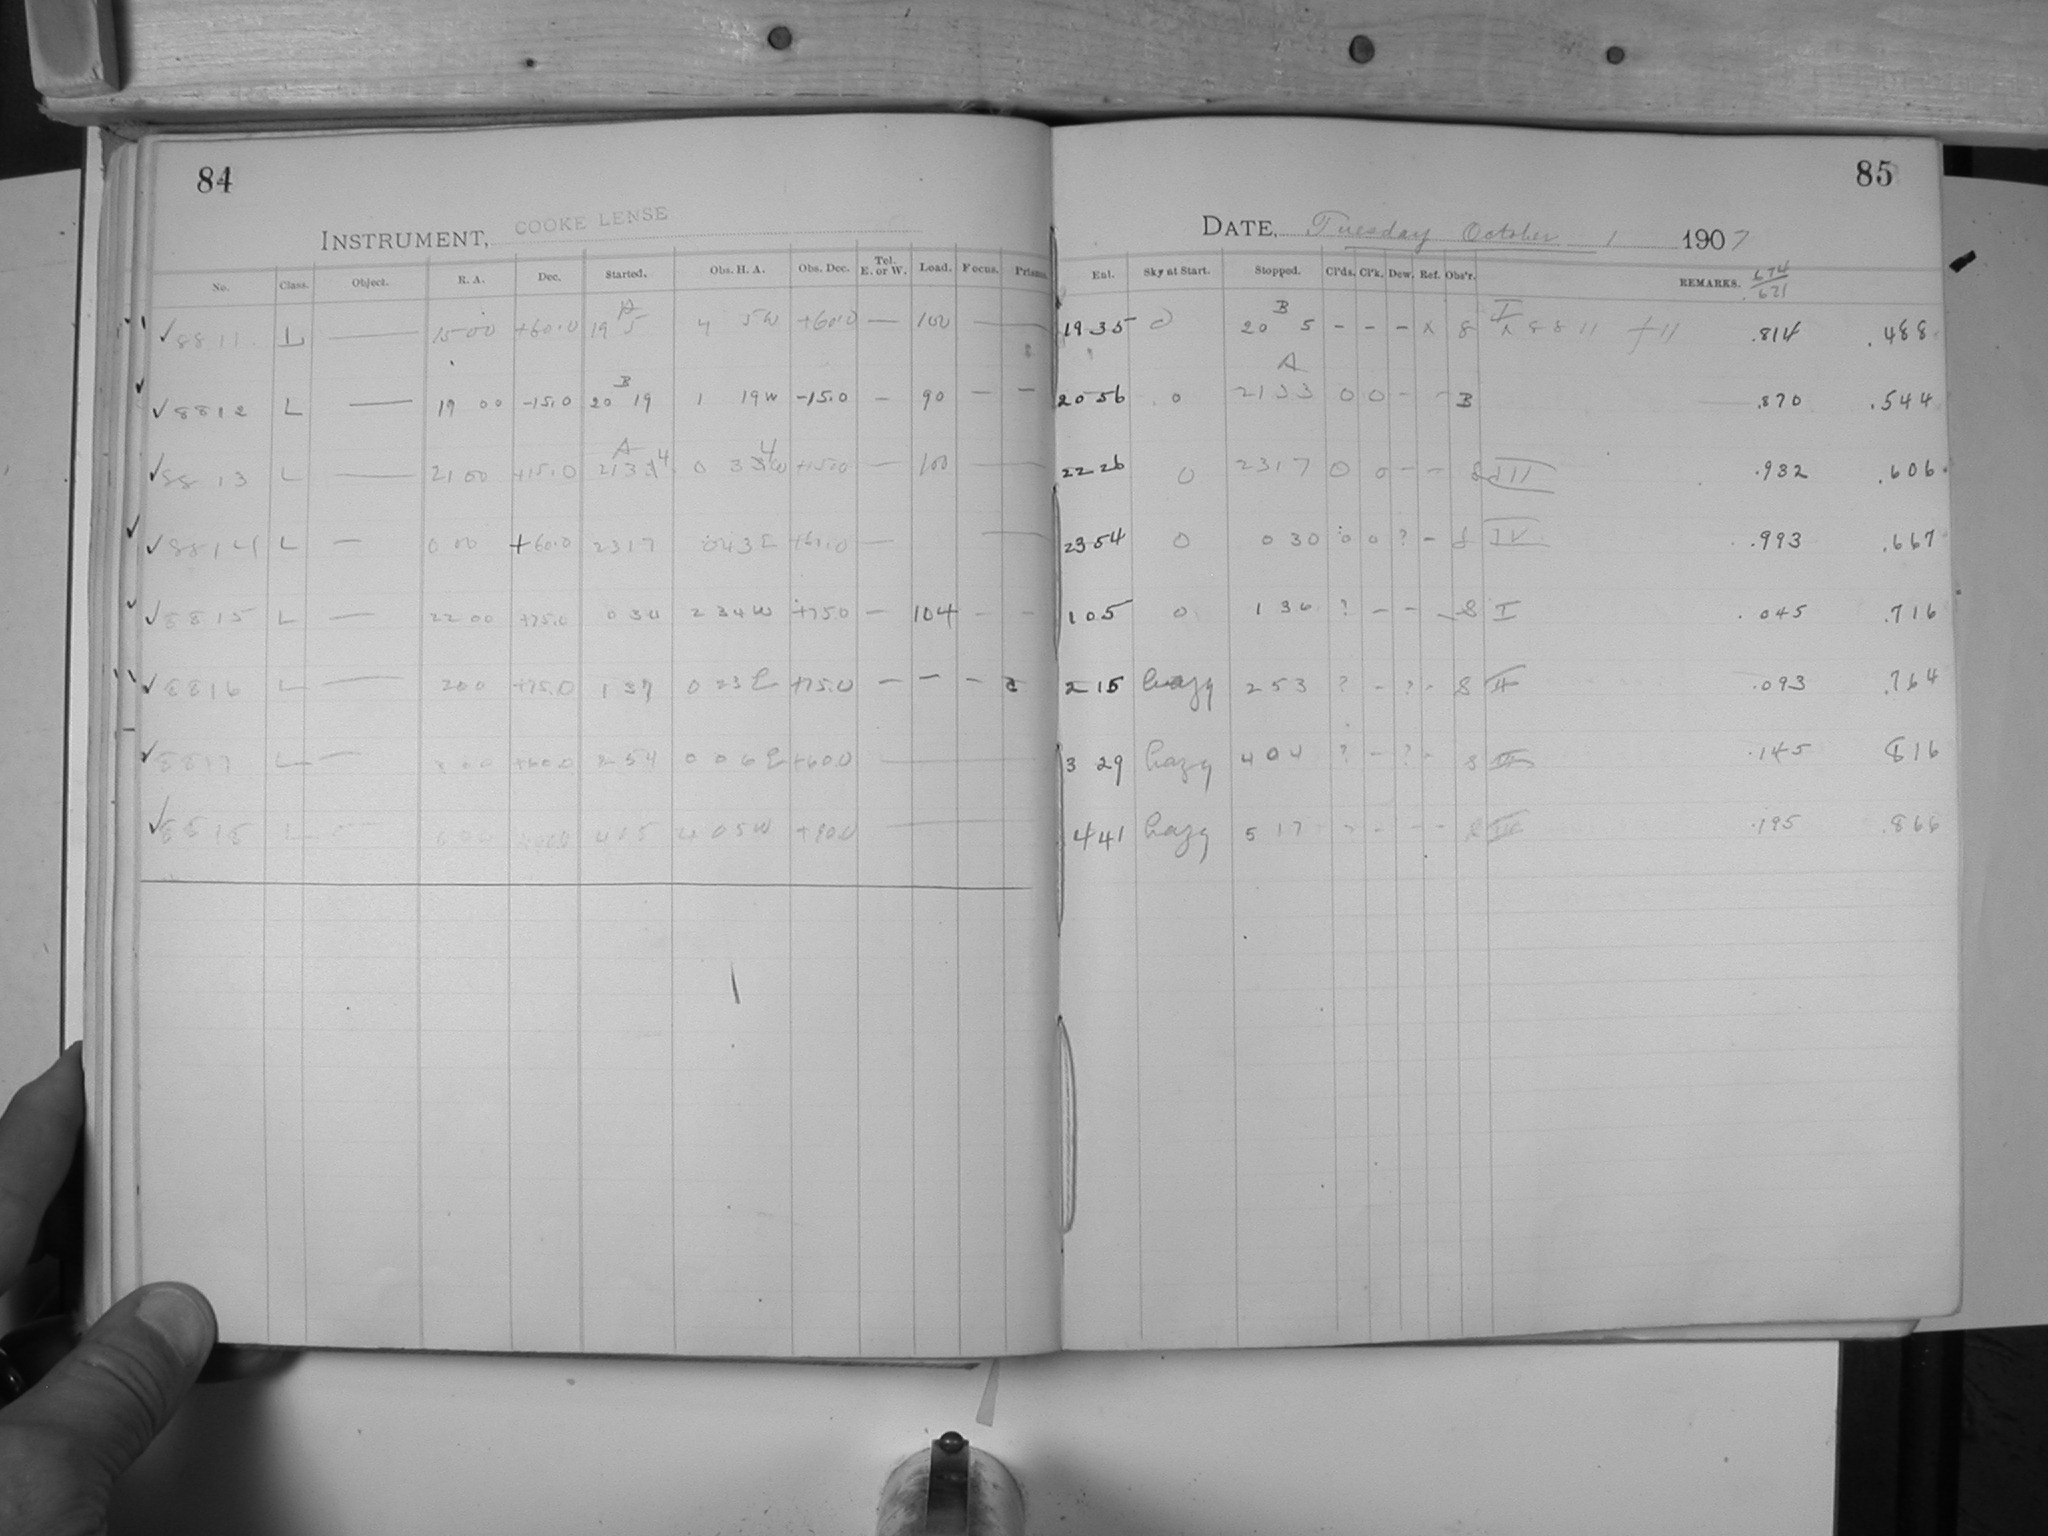 84
INSTRUMENT, COOKE LENSE
No. Class. Object. R. A. Dec. Started. Obs. H. A. Obs. Dec. Tel. E. or W. Load. Focus. Prisms.
✓ 8811 L — 15 00 +60.0 A 19 5 4 5W +60.0 — 100 —
✓ 8812 L — 19 00 -15.0 B 20 19 1 19W -15.0 — 90 — —
✓ 8813 L — 21 00 +15.0 A 21 34 0 34W +15.0 — 100 —
✓ 8814 L — 0 00 +60.0 23 17 0 43E +60.0 — —
✓ 8815 L — 22 00 +75.0 0 34 2 34W +75.0 — 104 — —
✓ 8816 L — 2 00 +75.0 1 37 0 23E +75.0 — — —
✓ 8817 L — 3 00 +60.0 2 54 0 06E +60.0 —
✓ 8818 L — 4 05W +90.0 —
85
DATE, Tuesday October 1 1907
Ent. Sky at Start. Stopped. Cl'ds. Cl'k. Dew. Ref. Obs'r. REMARKS. 674 / 621
19 35 0 B 20 5 – – – x S I x 8811 .814 .488
20 56 0 A 21 33 0 0 – – B .870 .544
22 26 0 23 17 0 0 – – S III .932 .606
23 54 0 0 30 0 0 ? – S IV .993 .667
1 05 0 1 36 ? – – – S I .045 .716
2 15 hazy 2 53 ? – ? – S II .093 .764
3 29 hazy 4 04 ? – ? – S .145 816
4 41 hazy 5 17 – – – .195 .866